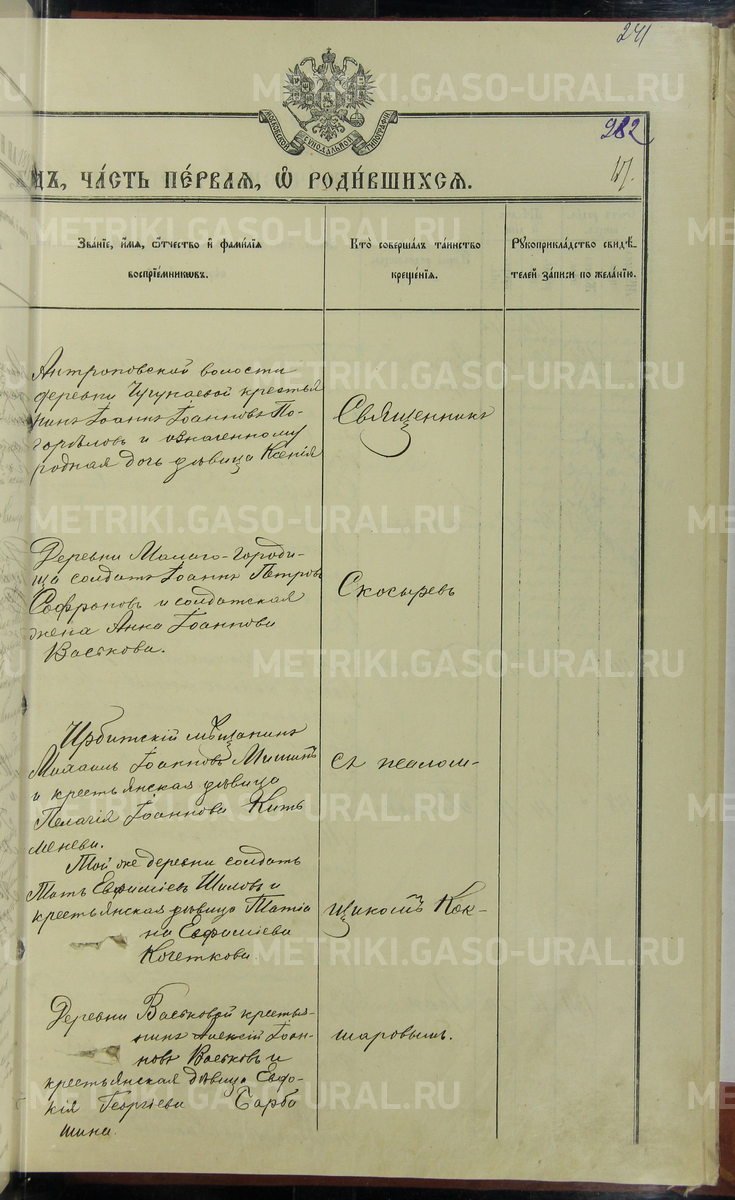 241
282
МОСКОВСКОЙ СѴНОДАЛЬНОЙ ТИПОГРАФІИ
ЦЪ, ЧА́СТЬ ПЕ́РВАЯ, Ѽ РОДИ́ВШИХСЯ.
Зва́нїе, и҆́мѧ, ѻ҆́тчество и҆ фами́лїѧ
воспрїе́мникѡвъ.
Кто̀ соверша́лъ та́инство
креще́нїѧ.
Рꙋкоприкла́дство свидѣ́-
телей за́писи по жела́нїю.
Антроповской волости
деревни Чугунаевой крестья
нинъ Іоаннъ Іоанновъ По-
горѣловъ и означенному
родная дочь дѣвица Ксенія
Деревни Малаго-Городи-
ща солдатъ Іоаннъ Петровъ
Софроновъ и солдатская
жена Анна Іоаннова
Васькова.
Ирбитскій мѣщанинъ
Михаилъ Іоанновъ Мишинъ
и крестьянская дѣвица
Пелагія Іоаннова Кить
менева.
Той же деревни солдатъ
Евфиміевъ Шиловъ и
крестьянская дѣвица Татіа
на Евфиміева
Кочеткова.
Деревни Васьковой крестья-
нинъ Алексій Іоан-
новъ Васьковъ и
крестьянская дѣвица Евдо-
кія Георгіева Барба
шина.
Священникъ
Скосыревъ
съ псалом-
щикомъ Кок-
шаровымъ.
METRIKI.GASO-URAL.RU